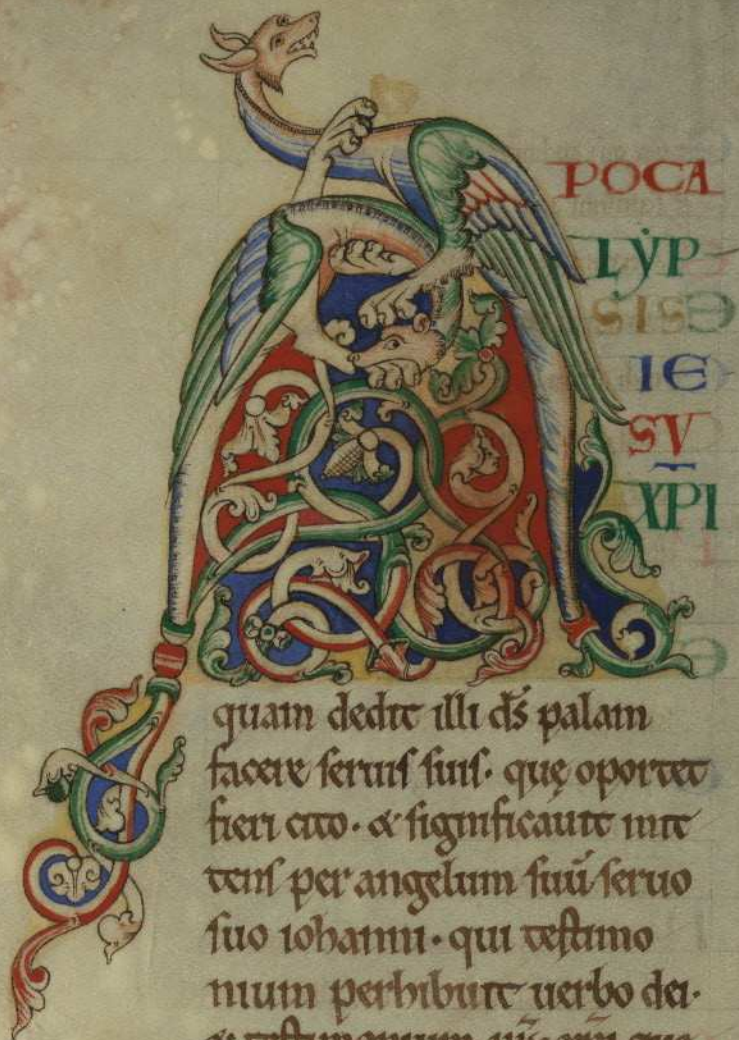 A
POCA
LẏP
SIS
IE
SV
XP̄I
quam dedit illi d̄s palam
facere seruis suis· quę oportet
fieri cito· & significauit mit
tens per angelum suū seruo
suo iohanni· qui testimo
nium perhibuit uerbo dei·
& testimonium